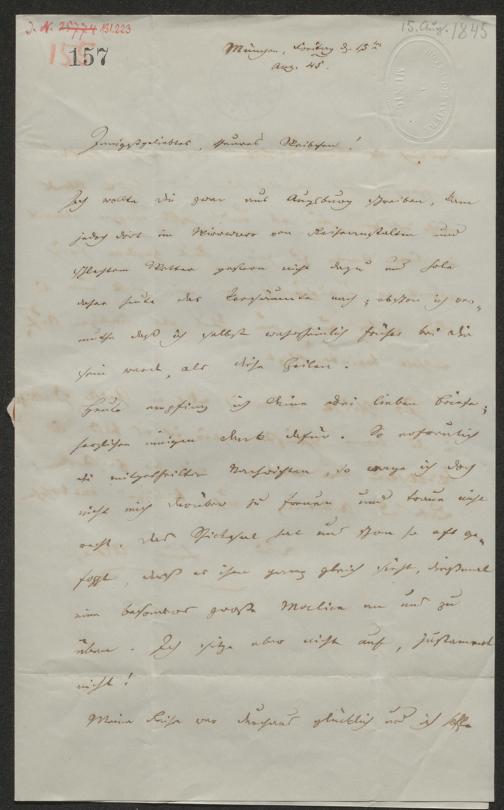 J. N. 25774 151.223
15. Aug. 1845
157
157
BATH
München, Freitag d. 15ten
Aug. 45.
Innigstgeliebtes, theures Weibchen!
Ich wollte Dir zwar aus Augsburg schreiben, kam
jedoch dort im Wirrwarr von Reiseanstalten und
schlechtem Wetter gestern nicht dazu und hole
daher heute das Versäumte nach; obschon ich ver-
muthe daß ich selbst wahrscheinlich früher bei Dir
sein werde, als diese Zeilen.
Heute empfing ich Deine drei lieben Briefe;
herzlichen innigen Dank dafür. So erfreulich
die mitgetheilten Nachrichten, so wage ich doch
nicht mich darüber zu freuen und traue nicht
recht. Das Schicksal hat uns schon so oft ge-
foppt, daß es ihm ganz gleich sieht, diesmal
eine besonders große Malice an uns zu
üben. Ich sitze aber nicht auf, justament
nicht!
Meine Reise war durchaus glücklich und ich hoffe